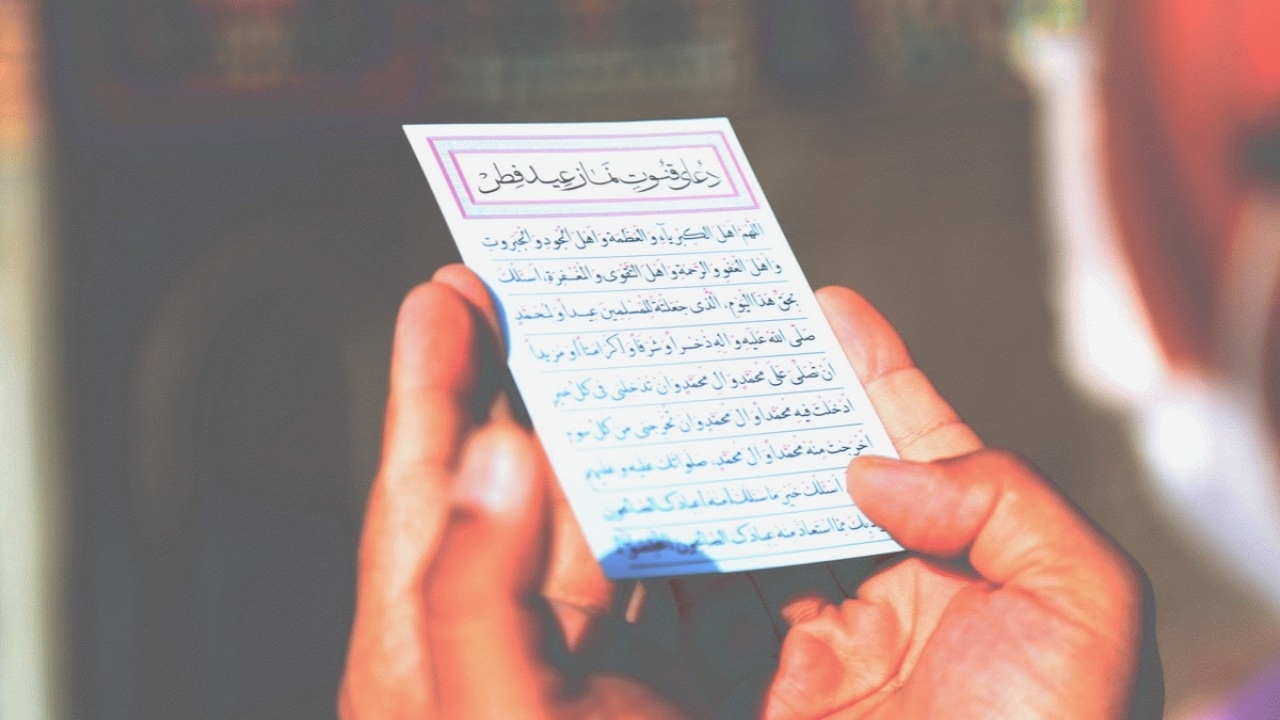 دُعای قنُوتِ نَماز عید فِطر
اَللّهُمَّ اَهْلَ الْكِبْرِيآءِ وَالْعَظَمَةِ وَاَهْلَ الْجُودِ وَالْجَبَرُوتِ
وَاَهْلَ الْعَفْوِ وَالرَّحْمَةِ وَاَهْلَ التَّقْوى وَالْمَغْفِرَةِ، اَسْئَلُكَ
بِحَقِّ هذَا الْيَوْمِ، الَّذى جَعَلْتَهُ لِلْمُسْلِمينَ عيداً وَ لِمُحَمَّدٍ
صَلَّى اللهُ عَلَيْهِ وَ الِهِ ذُخْراً وَ شَرَفاً وَ كَرامَتاً وَ مَزيداً
اَنْ تُصَلِّىَ عَلى مُحَمَّدٍ وَ الِ مُحَمَّدٍ وَ اَنْ تُدْخِلَنى فى كُلِّ خَيْرٍ
اَدْخَلْتَ فيهِ مُحَمَّداً وَ الَ مُحَمَّدٍ وَ اَنْ تُخْرِجَنى مِنْ كُلِّ سُوءٍ
اَخْرَجْتَ مِنْهُ مُحَمَّداً وَ الَ مُحَمَّدٍ، صَلَواتُكَ عَلَيْهِ وَ عَلَيْهِمْ
اَسْئَلُكَ خَيْرَ ما سَئَلَكَ مِنْهُ عِبادُكَ الصّالِحُونَ
بِكَ مِمَّا اسْتَعاذَ مِنْهُ عِبادُكَ